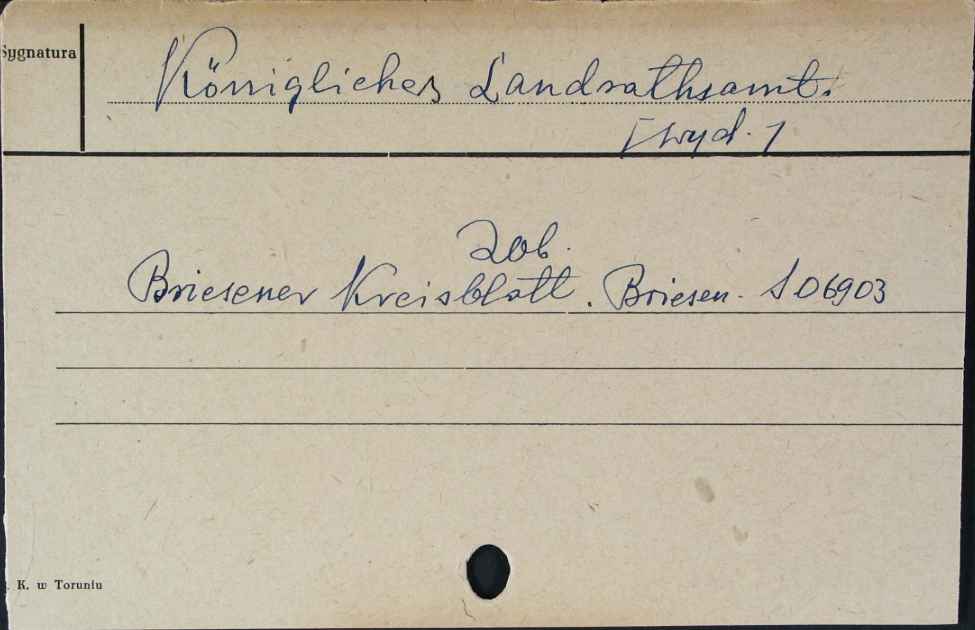 Sygnatura
Königliches Landrathsamt.
[wyd.]
Zob.
Briesener Kreisblatt. Briesen. S 06903
K. w Toruniu